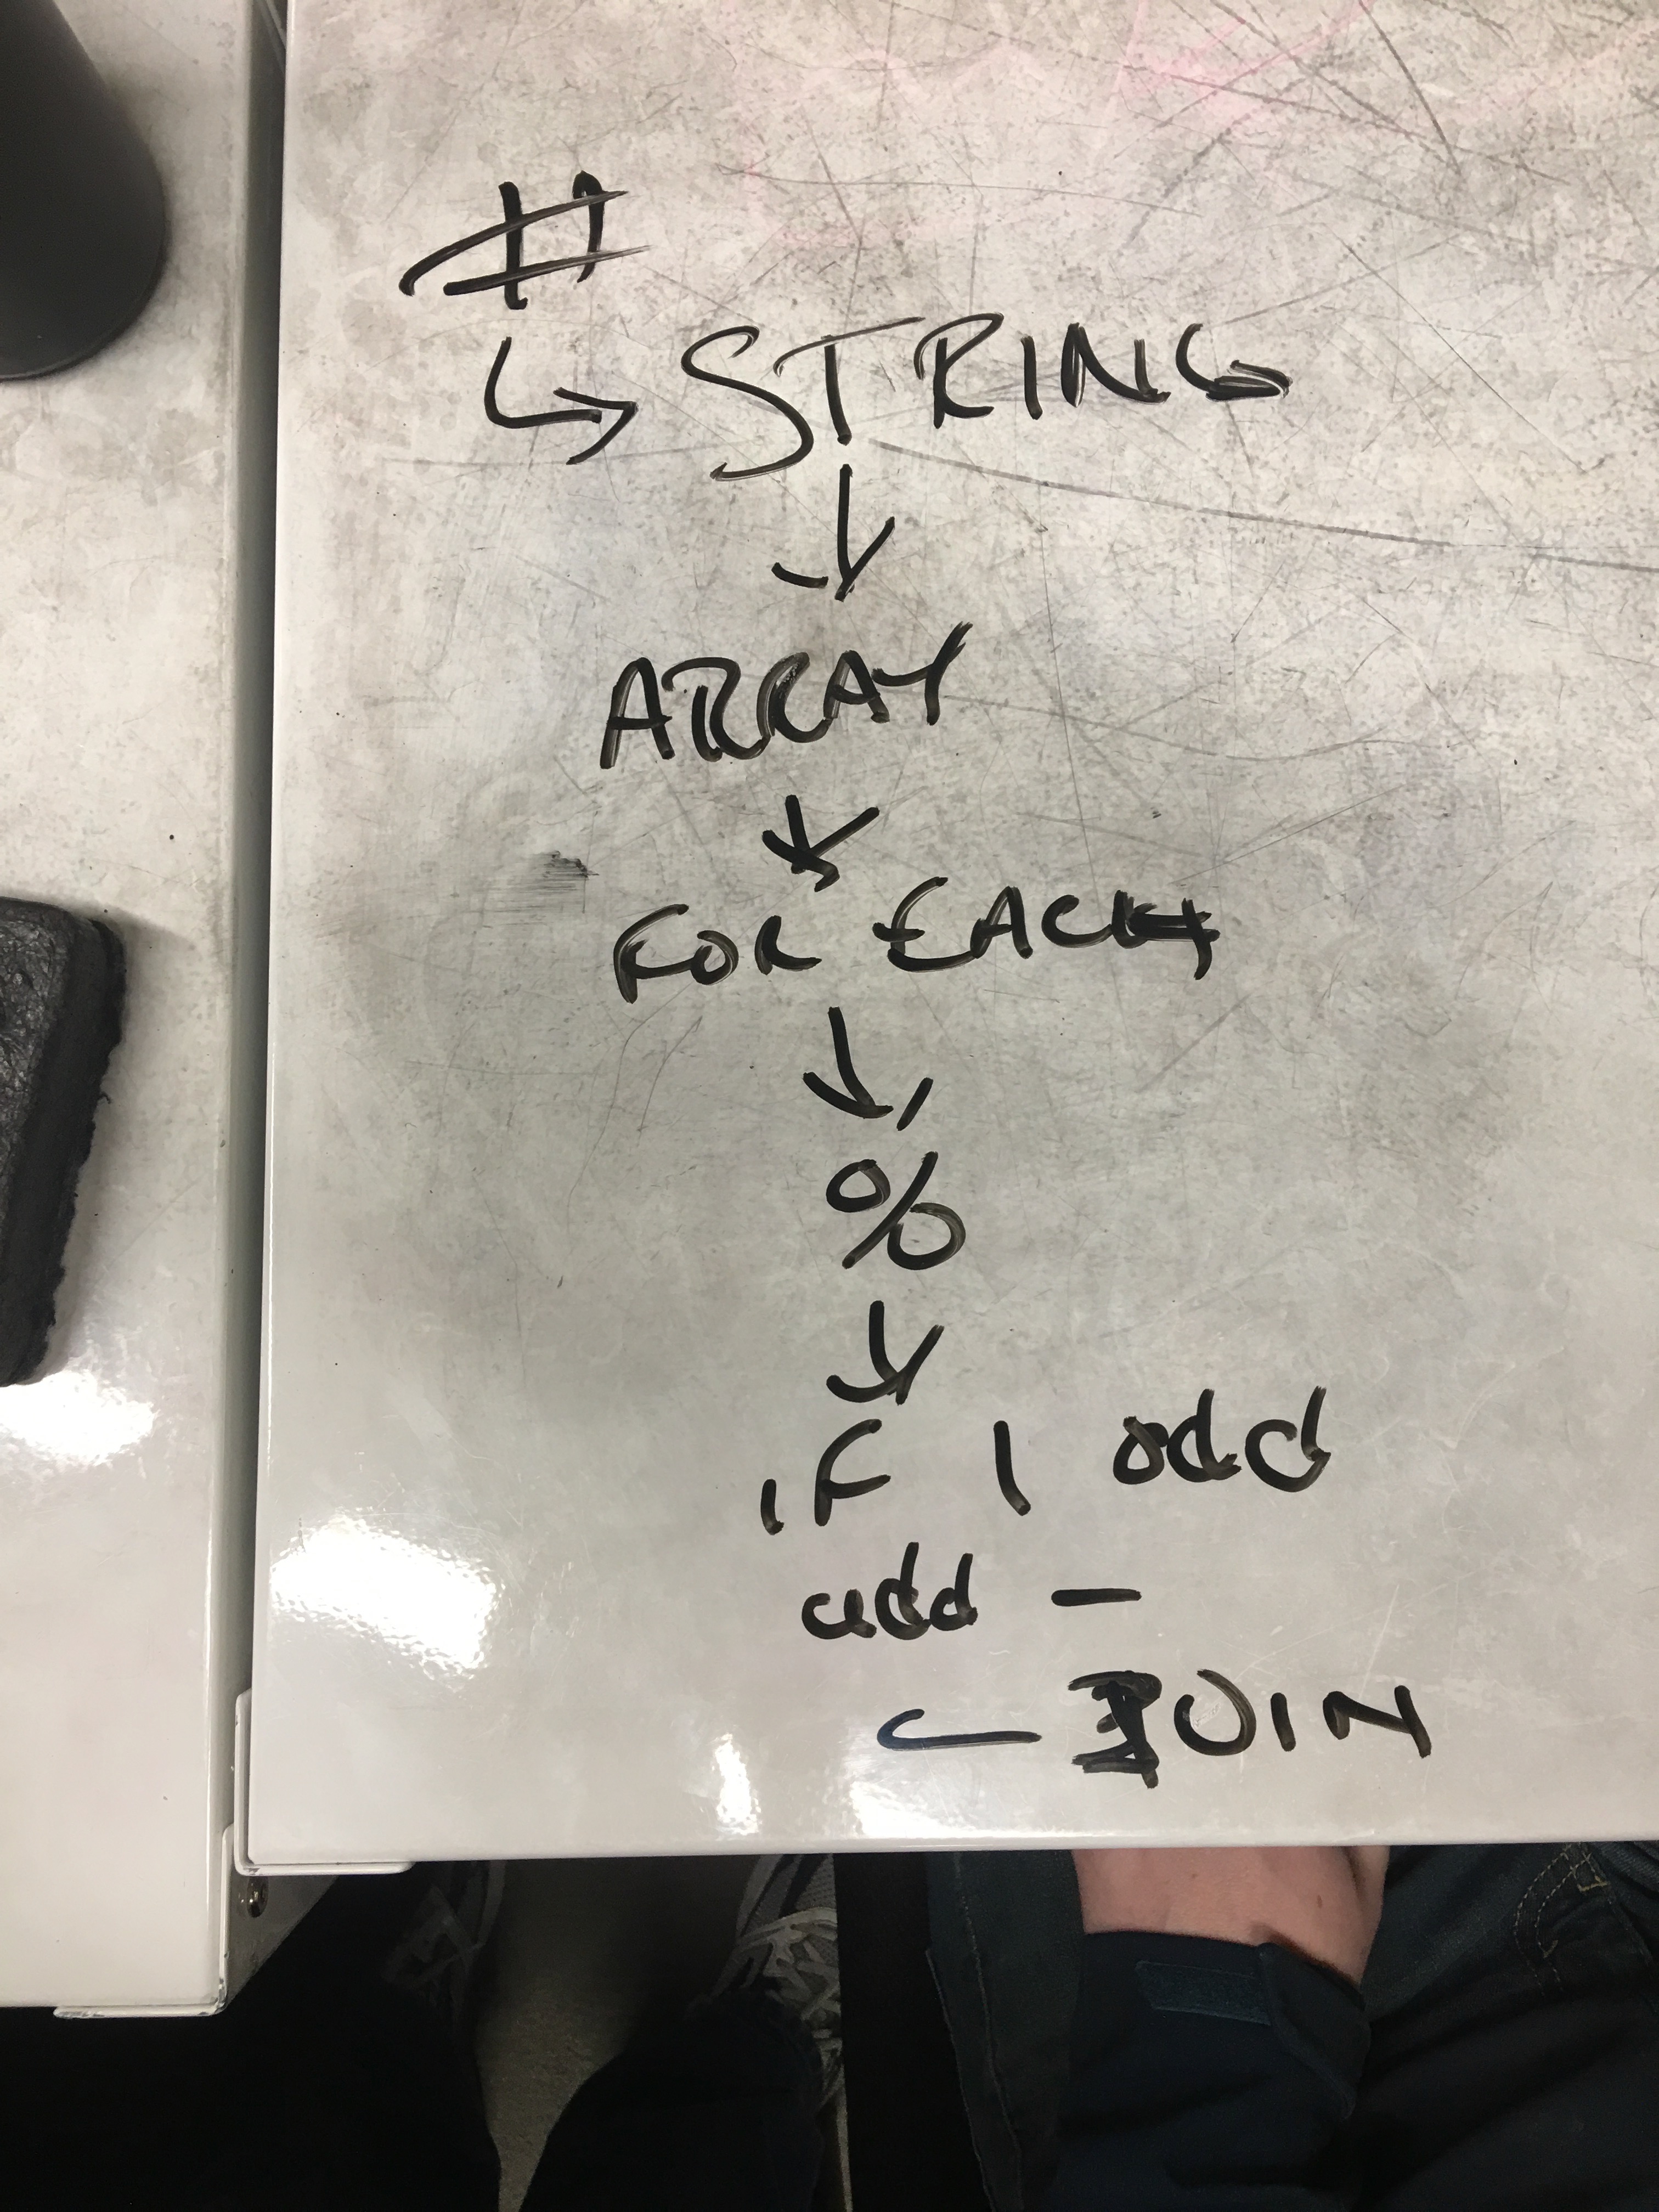 #
↳ STRING
↓
ARRAY
↓
FOR EACH
↓
%
↓
if 1 odd
add -
JOIN